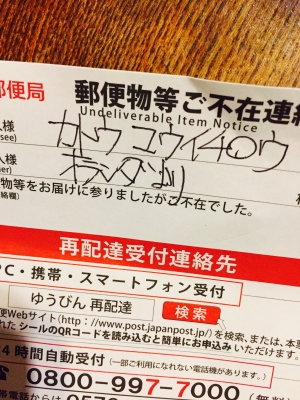 郵便局 郵便物等ご不在連絡
Undeliverable Item Notice
人様
see)
カトウ コウイチロウ
人様
er)
オランダより
物等をお届けに参りましたがご不在でした。
絡欄)
再配達受付連絡先
PC・携帯・スマートフォン受付
ゆうびん 再配達 検索
便Webサイト(http://www.post.japanpost.jp/)を検索、または、本票
れた シールのQRコードを読み込むと簡単にお申込みいただけます。
4時間自動受付 (一部ご利用になれない電話機があります。)
0800-997-7000 (無料
帯電話からは057